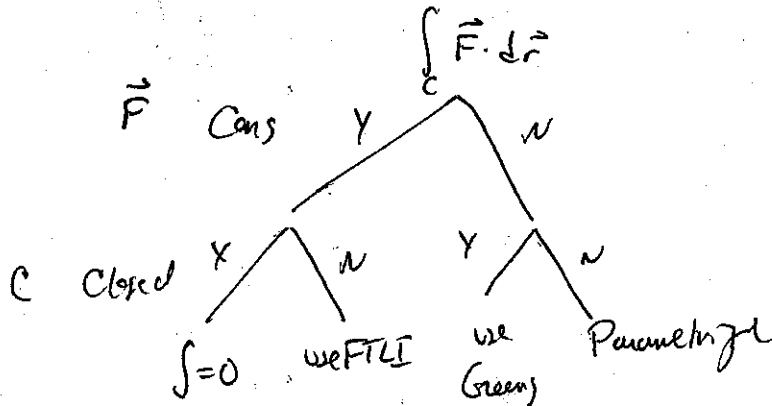 ∫_C F⃗·dr⃗
F⃗ Cons Y N
C Closed Y N Y N
∫=0 use FTLI use Greens Parametrize